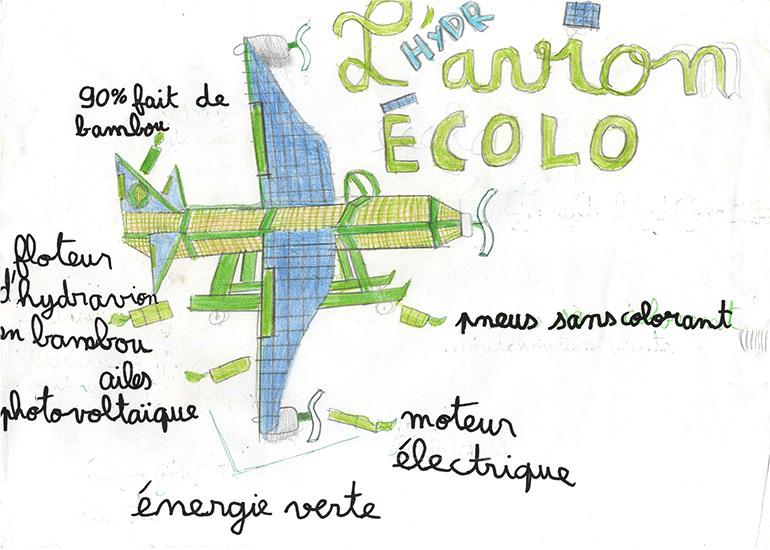 L'HYDRavion
ÉCOLO
90% fait de
bambou
floteur
d'hydravion
en bambou
ailes
photovoltaïque
pneus sans colorant
moteur
électrique
énergie verte